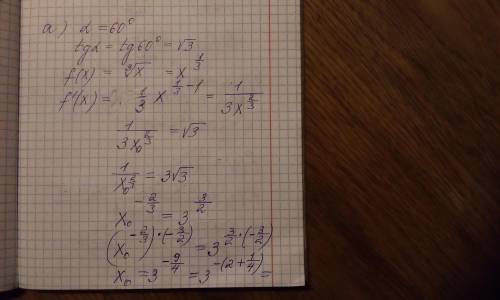 а) α = 60°
tgα = tg60° = √3
f(x) = ∛x = x^(1/3)
f'(x) = 1/3 x^(1/3 - 1) = 1/(3x^(2/3))
1/(3x₀^(2/3)) = √3
1/x₀^(2/3) = 3√3
x₀^(-2/3) = 3^(3/2)
(x₀^(-2/3))^(·(-3/2)) = 3^(3/2·(-3/2))
x₀ = 3^(-9/4) = 3^(-(2+1/4)) =